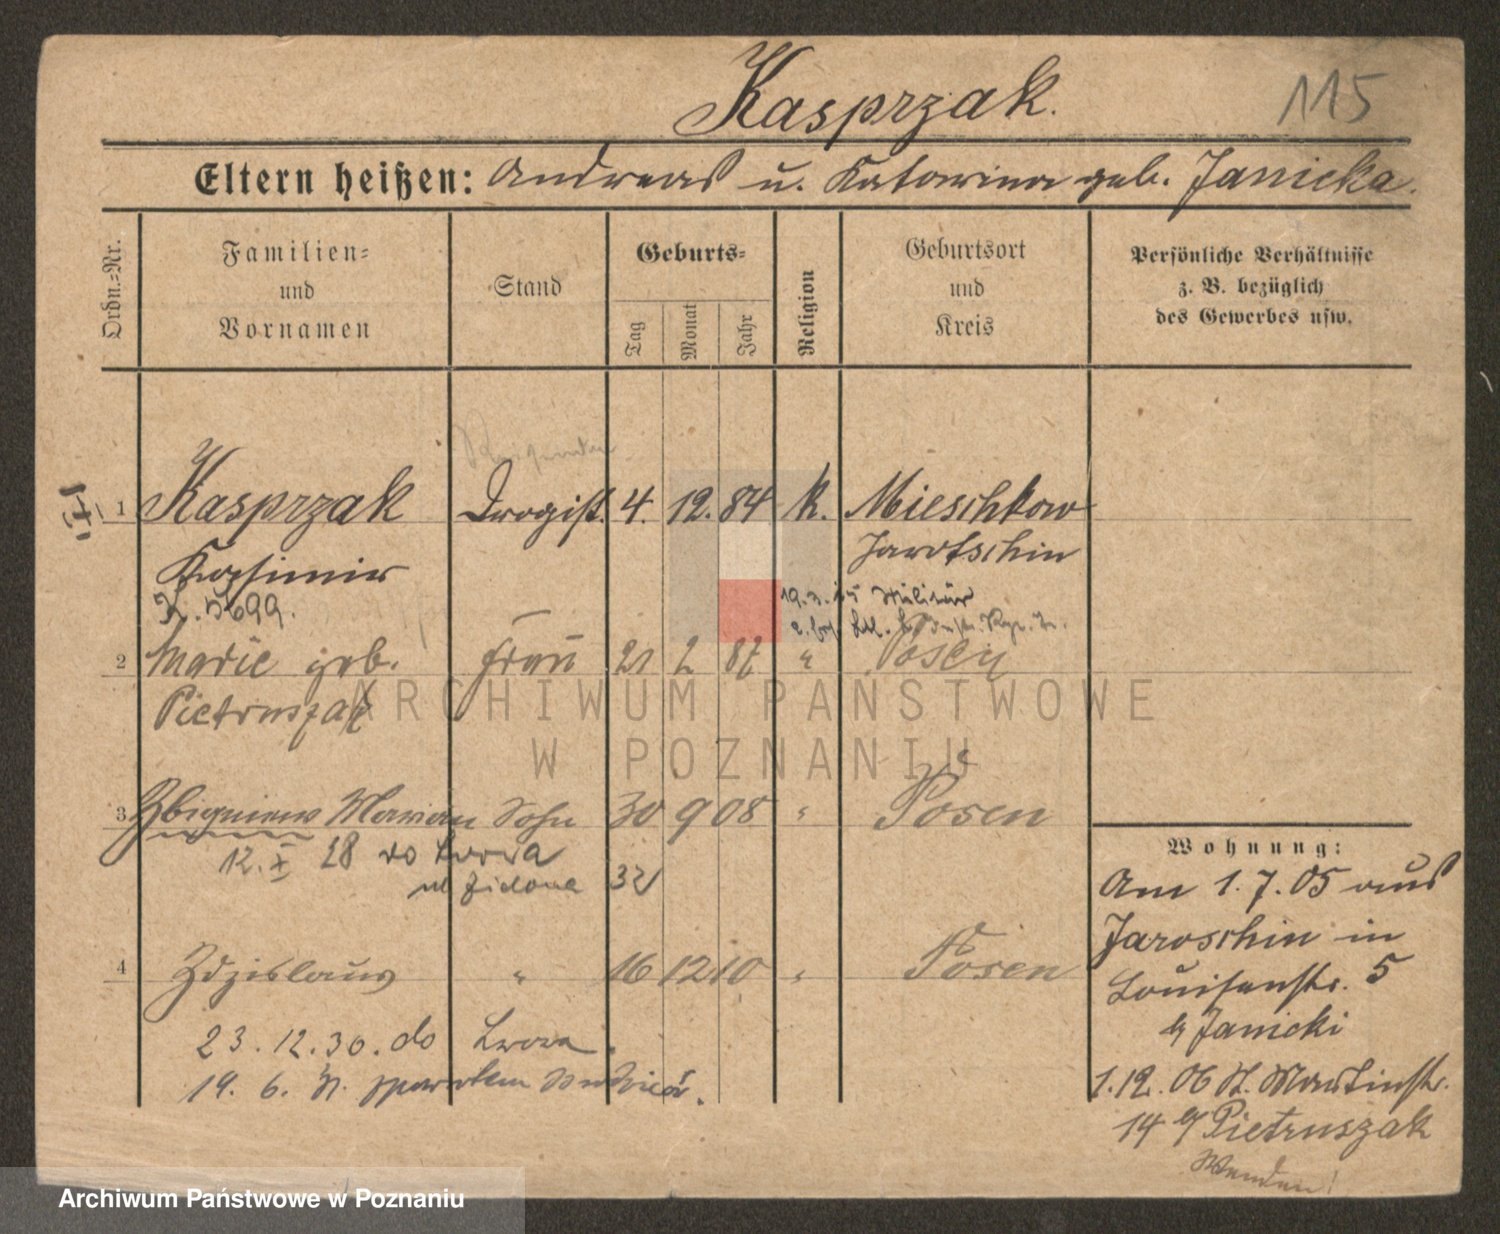 Kasprzak.
115
Eltern heißen: Andreas u. Katarina geb. Janicka.
Ordn.-Nr.
Familien-
und
Vornamen
Stand
Geburts-
Tag
Monat
Jahr
Religion
Geburtsort
und
Kreis
Persönliche Verhältnisse
z. B. bezüglich
des Gewerbes usw.
1 Kasprzak Drogist. 4. 12. 84 K. Mieschkow
Kasimir Jarotschin
K. 5699.
Militär
2 Marie geb. Frau 21 2 87 " Posen
Pietruszak
3 Zbigniew Marian Sohn 30 9 08 " Posen
12. X 28 do Lwowa
ul Zielona 32
4 Zdzislaus " 16 12 10 " Posen
23. 12. 30. do Lwowa.
19. 6.
Wohnung:
Am 1. 7. 05 aus
Jaroschin in
Louisenstr. 5
b/ Janicki
1. 12. 06 St. Martinstr.
14 b/ Pietruszak
Wenden!
ARCHIWUM PAŃSTWOWE
W POZNANIU
Archiwum Państwowe w Poznaniu